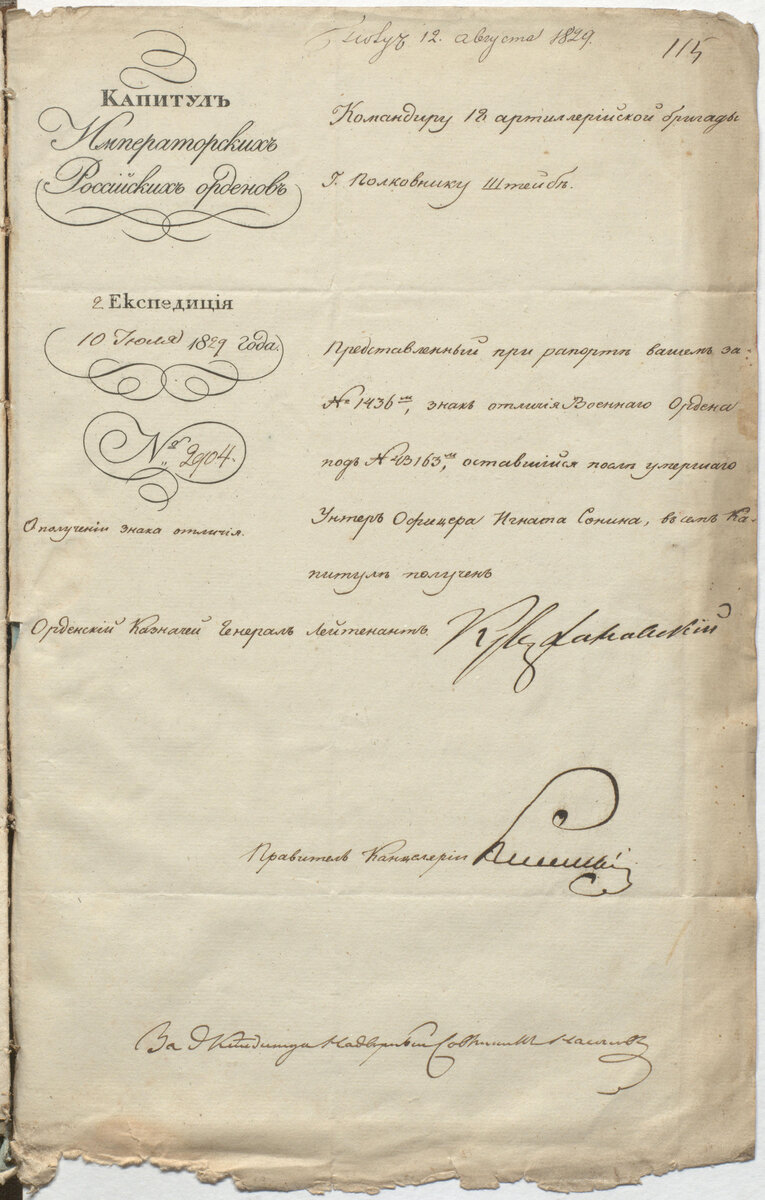 12. августа 1829.
115
Капитулъ
Императорскихъ
Россійскихъ орденовъ
Командиру 12 артиллерійской бригады
Г. Полковнику Штейбъ.
2 Експедиція
10 Іюля 1829 года.
№ 2904.
О полученіи знака отличія.
Представленный при рапортѣ вашемъ за
№ 1436ᵐ, знакъ отличія Военнаго Ордена
подъ № 163ᵐ, оставшійся послѣ умершаго
Унтеръ Офицера Игната Сонина, въ семъ Ка-
питулѣ полученъ
Орденскій Казначей Генералъ Лейтенантъ
Правитель Канцеляріи
За Надворный Совѣтникъ